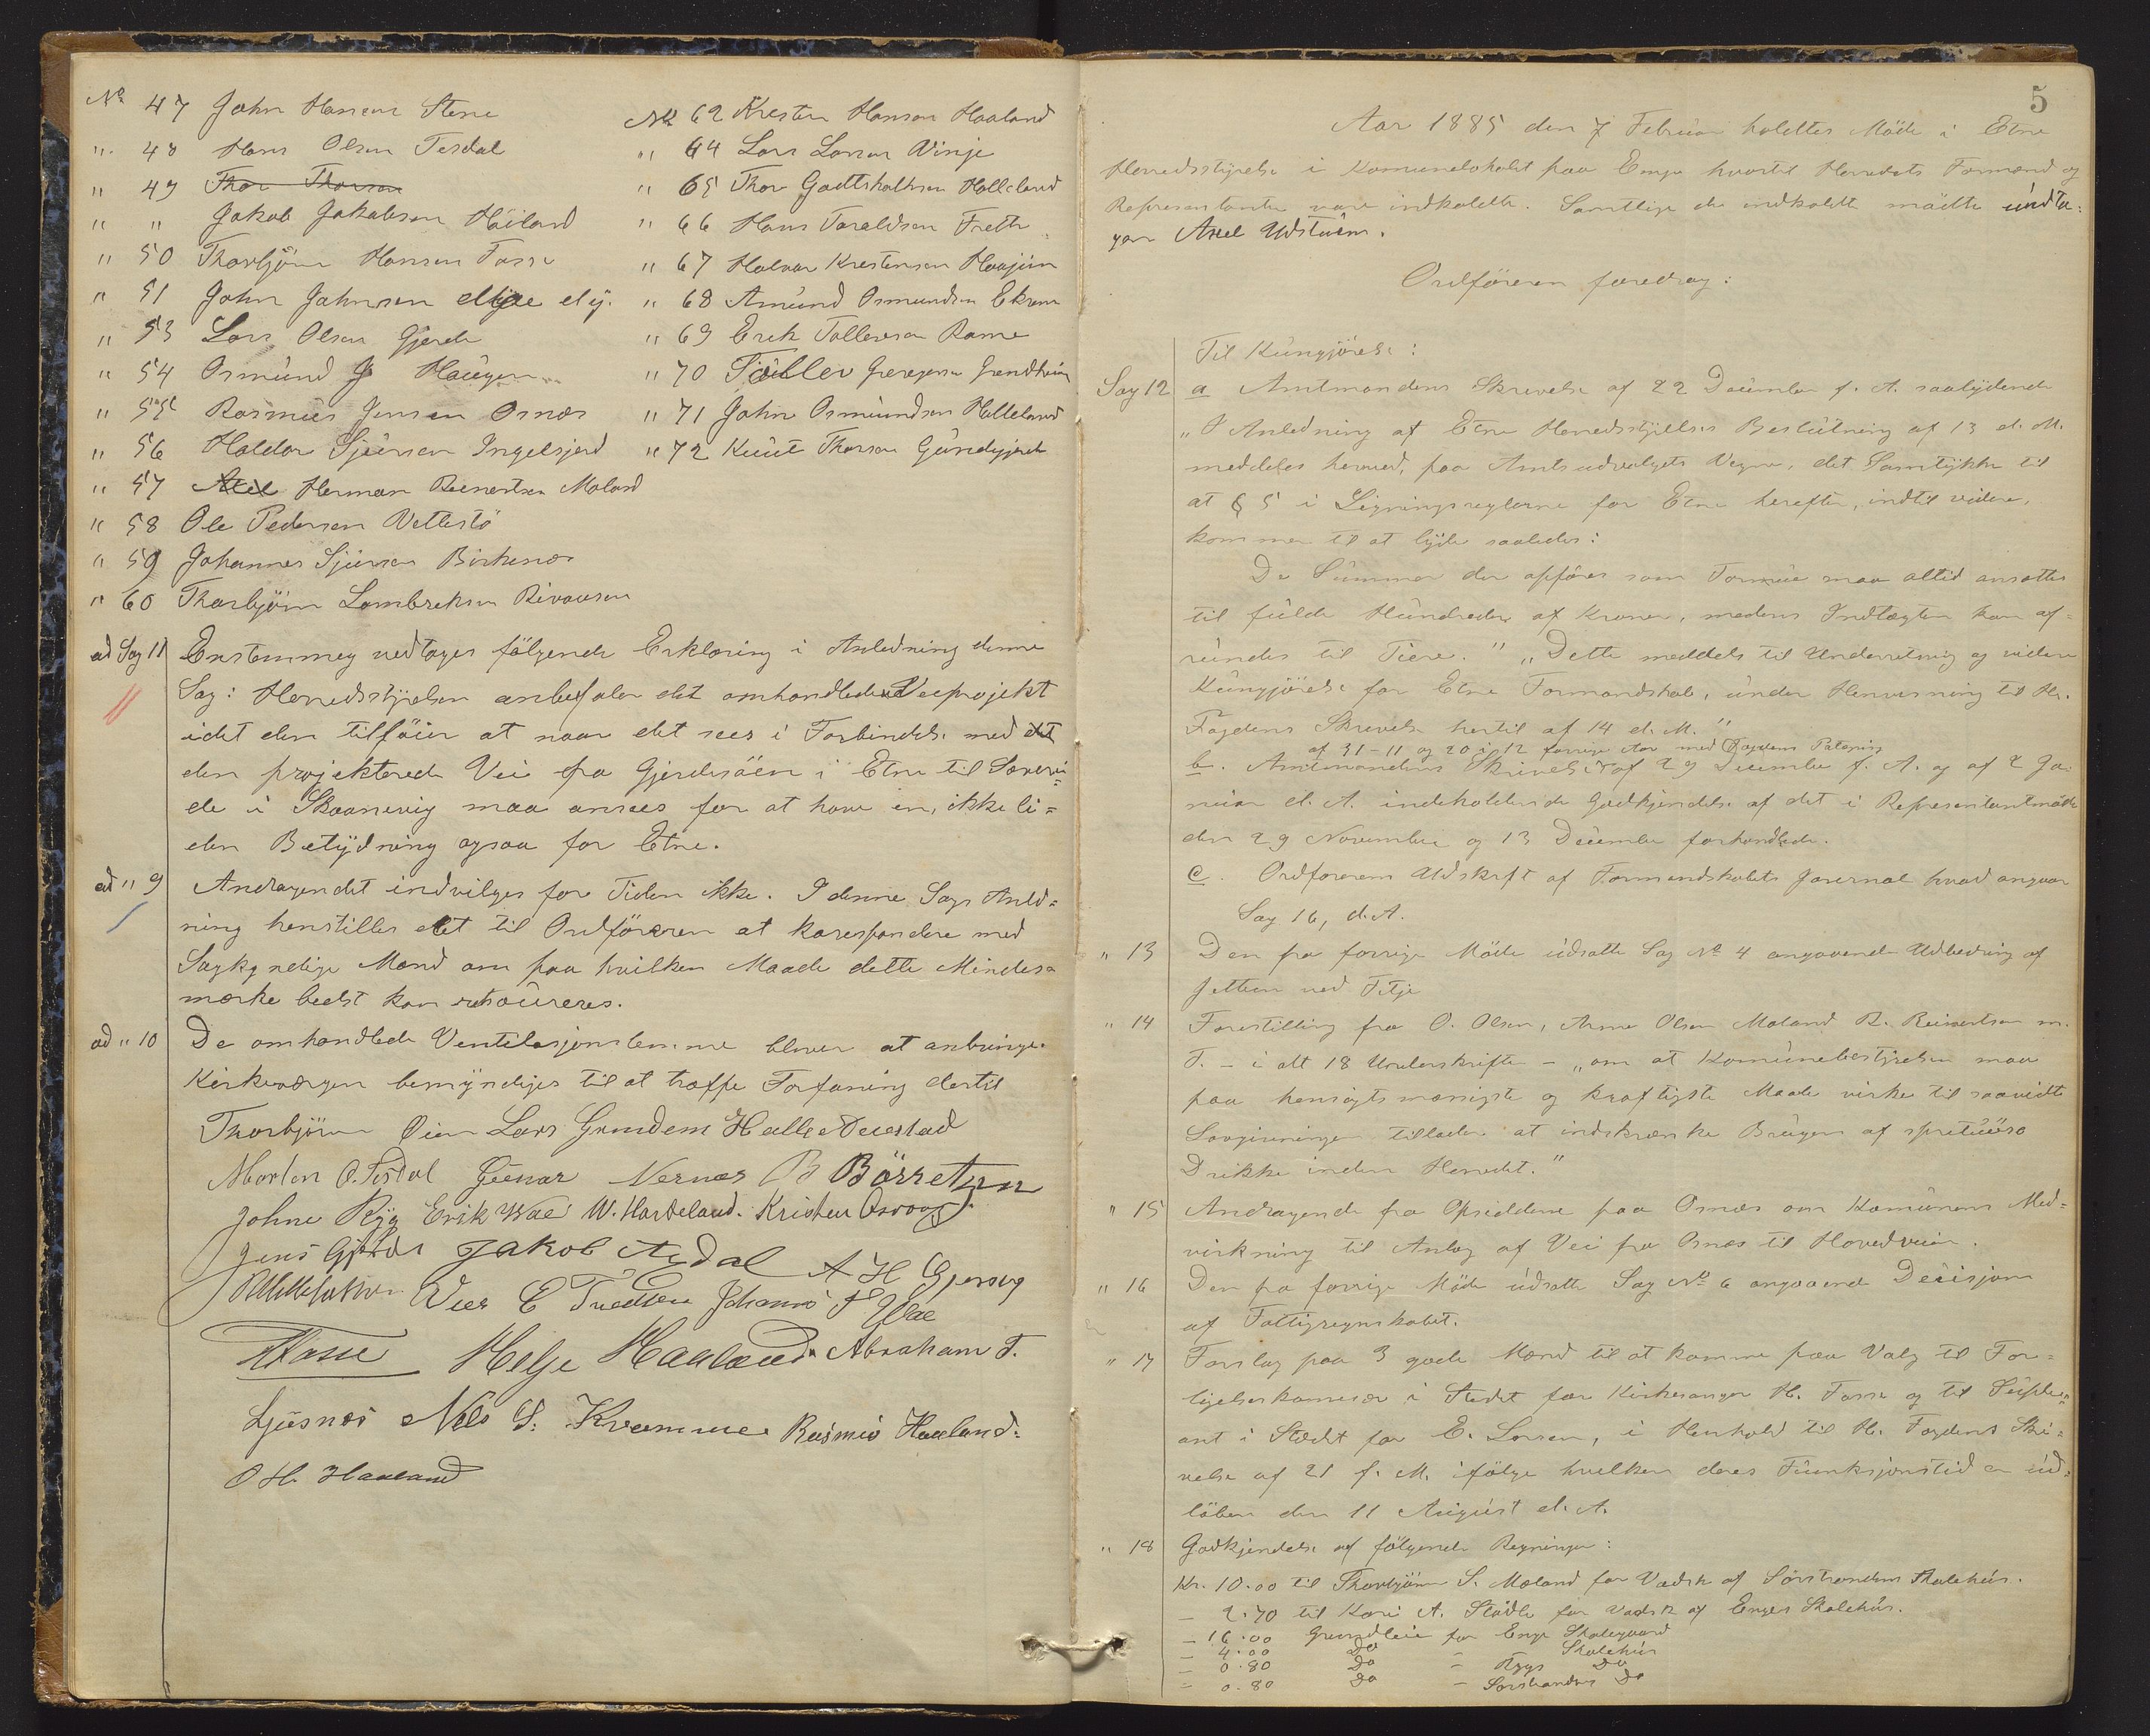 No 47 John Hansen Stene
" 48 Hans Olsen Tesdal
" 49 Thor Thorsen
" " Jakob Jakobsen Håiland
" 50 Thorbjörn Hansen Fosse
" 51 John Johnsen Myge
" 53 Lars Olsen Gjerde
" 54 Osmund J Haugen
" 55 Rasmus Jensen Osnæs
" 56 Haldor Sjursen Ingelsjord
" 57 Axel Herman Reinertsen Moland
" 58 Ole Pedersen Vettestö
" 59 Johannes Sjursen Birkenæs
" 60 Thorbjörn Lambreksen
No 62 Kristen Hansen Haaland
" 64 Lars Larsen Vinje
" 65 Thor Godtskalksen Halleland
" 66 Hans Taraldsen Frette
" 67 Halvor Krestensen Haajem
" 68 Amund Osmundsen Ekren
" 69 Erik Tollevsen Rame
" 70 Tollev Gregersen Grendheim
" 71 John Osmundsen Halleland
" 72 Knut Thorsen Gundegjerde
ad Sag 11 Enstemmeg vedtoges fölgende Erklæring i Anledning denne
Sag: Herredsstyrelsen anbefaler det omhandlede Veeprojekt
idet den tilföier at naar det sees i Forbindelse med det
den projekterede Vei fra Gjerdesöen i Etne til
de i Skaanevig maa ansees for at have en, ikke li=
den Betydning ogsaa for Etne.
ad " 9 Andragendet indvilges for Tiden ikke. I denne Sags Anled=
ning henstilles det til Ordföreren at korespondere med
Sagkyndige Mænd om paa hvilken Maade dette Mindes=
mærke bedst kan restoureres.
ad " 10 De omhandlede Ventilasjonslemme bliver at anbringe.
Kirkeværgen bemyndiges til at træffe Forføining dertil
Thorbjörn Öien Lars Grindem Halle Deiestad
Morten O. Tesdal Gunar Nernæs B Börretzen
Johne Ryg Erik Wae W. Hardeland. Kristen Osvaag.
Jens Gjerde Jakob Asdal A H Gjersvig
E Tvedten Johannes Wae
Fosse Helje Haaland Abraham T.
Ljusnes Nels S. Kvamme Rasmus Haaland.
O H. Haaland
5
Aar 1885 den 7 Februar holdttes Möde i Etne
Herredsstyrelse i Komunelokalet paa Enge hvortil Herredets Formænd og
Representanter vare indkaldte. Samtlige de indkaldte mödte undta:
gen Axel Udstuen.
Ordföreren foredrog:
Til Kungjörelse:
Sag 12 a Amtmandens Skrivelse af 22 December f. A. saalydende
" I Anledning af Etne Herredsstyrelses Beslutning af 13 d. M.
meddeles herved, paa Amtsudvalgets Vegne, det Samtykke til
at § 5 i Ligningsreglerne for Etne herefter, indtil videre,
kommer til at lyde saaledes:
De Summer der opföres som Formue maa altid ansættes
til fulde Hundreder af Kroner, medens Indtægten kan af=
rundes til Tiere." "Dette meddels til Underretning og videre
Kungjörelse for Etne Formandskab, under Henvisning til Hr.
Fogdens Skrivelse hertil af 14 d. M."
af 31-11 og 20 12 forrige Aar med Fogdens Paategning
b. Amtmandens Skrivelser af 29 December f. A. og af 2 Ja=
nuar d. A. indeholdende Godkjendelse af det i Representantmöde
den 29 November og 13 December forhandlede.
c. Ordførerens Udskrift af Formandskabets Jouernal hvad angaar
Sag 16, d. A.
" 13 Den fra forrige Möde udsatte Sag No 4 angaaende Udbedring af
Jetteen ved Fitje
" 14 Forestilling fra O. Olsen, Arne Olsen Moland R. Reinertsen m.
F. - i alt 18 Underskrifter - "om at Komunebestyrelsen maa
paa hensigtsmæssigste og kraftigste Maade virke til saavidt
Lovgivningen tillader at indskrænke Brugen af spretuöse
Drikke inden Herredet."
" 15 Andragende fra Opsidderne paa Osnæs om Komunens Med=
virkning til Anlæg af Vei fra Osnæs til Hovedveien.
" 16 Den fra forrige Möde udsatte Sag No 6 angaaende Decisjon
af Fattigregnskabet.
" 17 Forslag paa 3 gode Mænd til at komme paa Valg til For=
ligelseskomisær i Stedet for Kirkesanger H. Fosse og til Suple=
ant i Stedet for E. Larsen, i Henhold til Hr. Fogdens Skri=
velse af 21 f. M. ifölge hvilken deres Funksjonstid er ud=
löben den 11 August d. A.
" 18 Godkjendelse af fölgende Regninger:
Kr. 10.00 til Thorbjörn S. Moland for Vadsk af Sörstrandens Skolehus.
- 2.70 til Kari A. Stödle for Vadsk af Enges Skolehus.
- 16.00 Grundleie for Enge Skolegaard
- 4.00 Do - Skolehus
- 0.80 Do - Rygs Do
- 0.80 Do - Sörstrandens Do